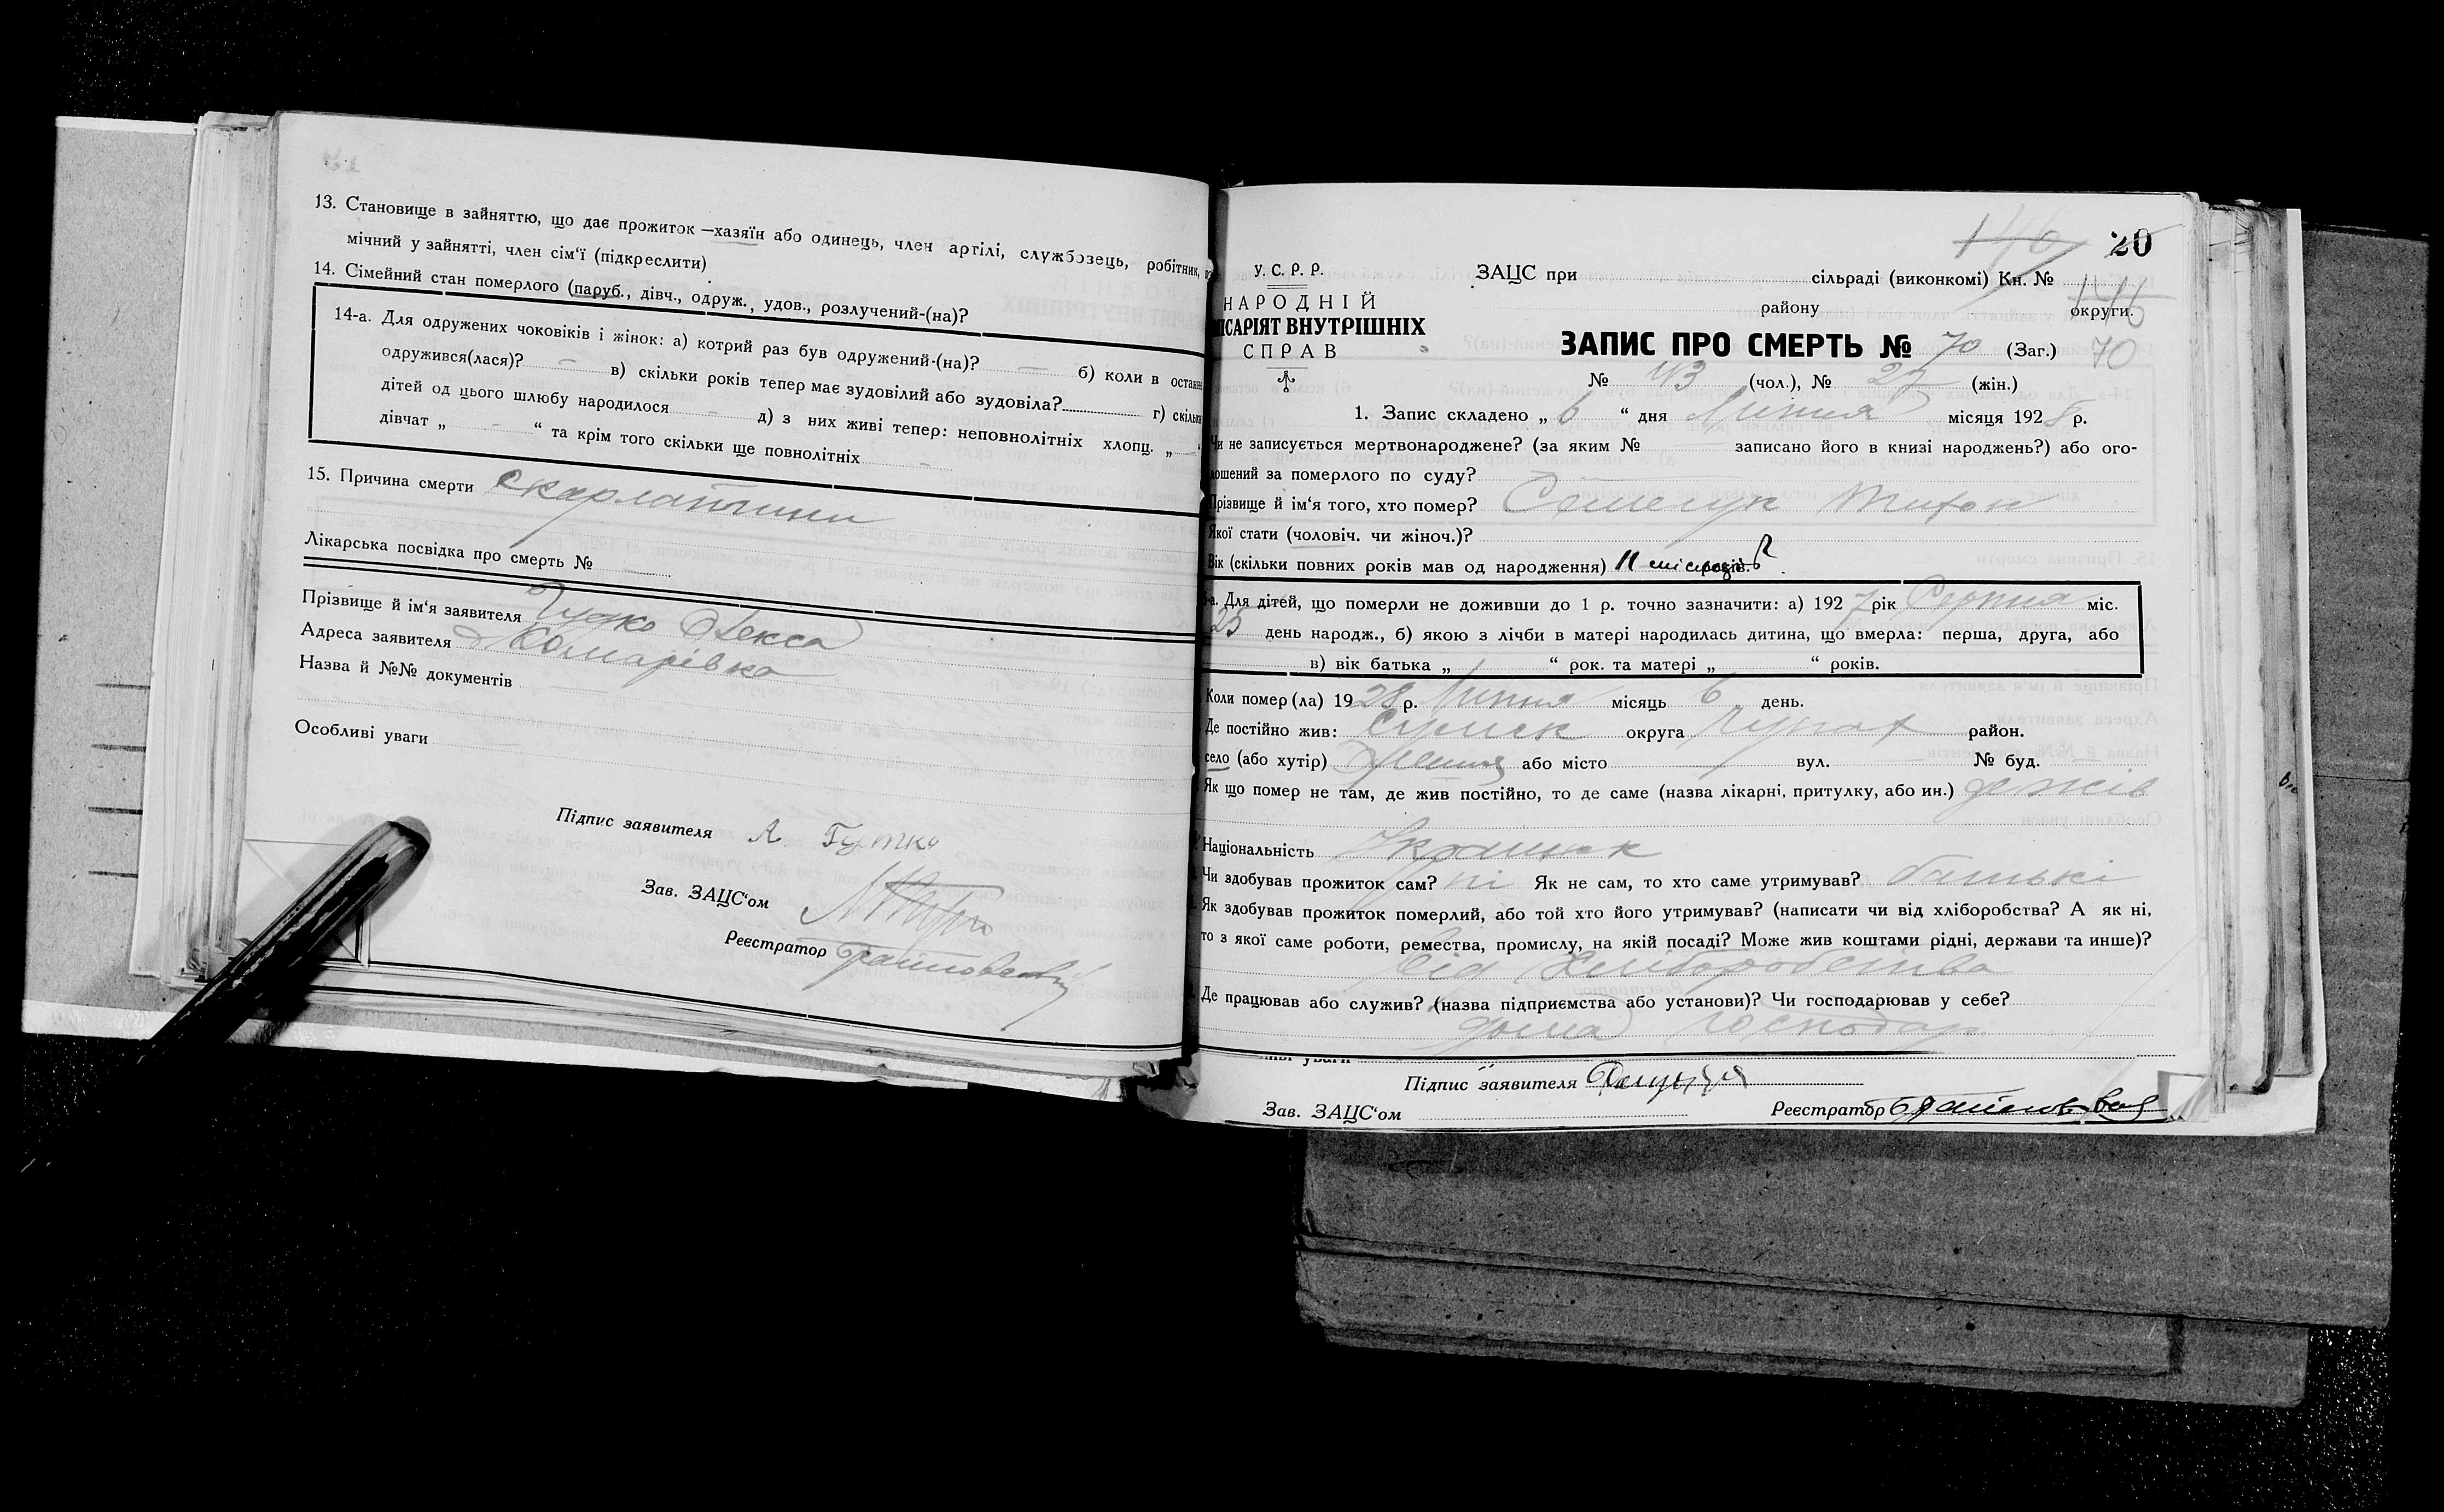 13. Становище в зайняттю, що дає прожиток —хазяїн або одинець, член артілі, службовець, робітник,
мічний у зайнятті, член сім'ї (підкреслити)
14. Сімейний стан померлого (паруб., дівч., одруж., удов., розлучений-(на)?
14-а. Для одружених чоковіків і жінок: а) котрий раз був одружений-(на)? — б) коли в останн
одружився(лася)? — в) скільки років тепер має зудовілий або зудовіла? г) скільк
дітей од цього шлюбу народилося – д) з них живі тепер: неповнолітніх хлопц. „ —
дівчат „ - “ та крім того скільки ще повнолітніх -
15. Причина смерти скарлатини
Лікарська посвідка про смерть №
Прізвище й ім'я заявителя Гутко Олекса
Адреса заявителя Комарівка
Назва й №№ документів
Особливі уваги
Підпис заявителя А. Гутко
Зав. ЗАЦС'ом
Реєстратор
20
146
У. С. Р. Р.
НАРОДНІЙ
ІСАРІЯТ ВНУТРІШНІХ
СПРАВ
ЗАЦС при сільраді (виконкомі) Кн. № 146
району округи.
ЗАПИС ПРО СМЕРТЬ № 70 (Заг.) 70
№ 43 (чол.), № 27 (жін.)
1. Запис складено „ 6 “ дня Липня місяця 1928 р.
Чи не записується мертвонароджене? (за яким № записано його в книзі народжень?) або ого-
лошений за померлого по суду?
Прізвище й ім'я того, хто помер? Тихон
Якої стати (чоловіч. чи жіноч.)?
Вік (скільки повних років мав од народження) 11 місяців років.
-а. Для дітей, що померли не доживши до 1 р. точно зазначити: а) 1927 рік Серпня міс.
25 день народж., б) якою з лічби в матері народилась дитина, що вмерла: перша, друга, або
в) вік батька „ “ рок. та матері „ “ років.
Коли помер (ла) 1928 р. Липня місяць 6 день.
Де постійно жив: Сумск округа район.
село (або хутір) або місто вул. № буд.
Як що помер не там, де жив постійно, то де саме (назва лікарні, притулку, або ин.) де жів
Національність Українск
Чи здобував прожиток сам? ні Як не сам, то хто саме утримував? батькі
Як здобував прожиток померлий, або той хто його утримував? (написати чи від хліборобства? А як ні,
то з якої саме роботи, ремества, промислу, на якій посаді? Може жив коштами рідні, держави та инше)?
від Хліборобства
Де працював або служив? (назва підприємства або установи)? Чи господарював у себе?
дома господар
Підпис заявителя
Зав. ЗАЦС'ом Реєстратор